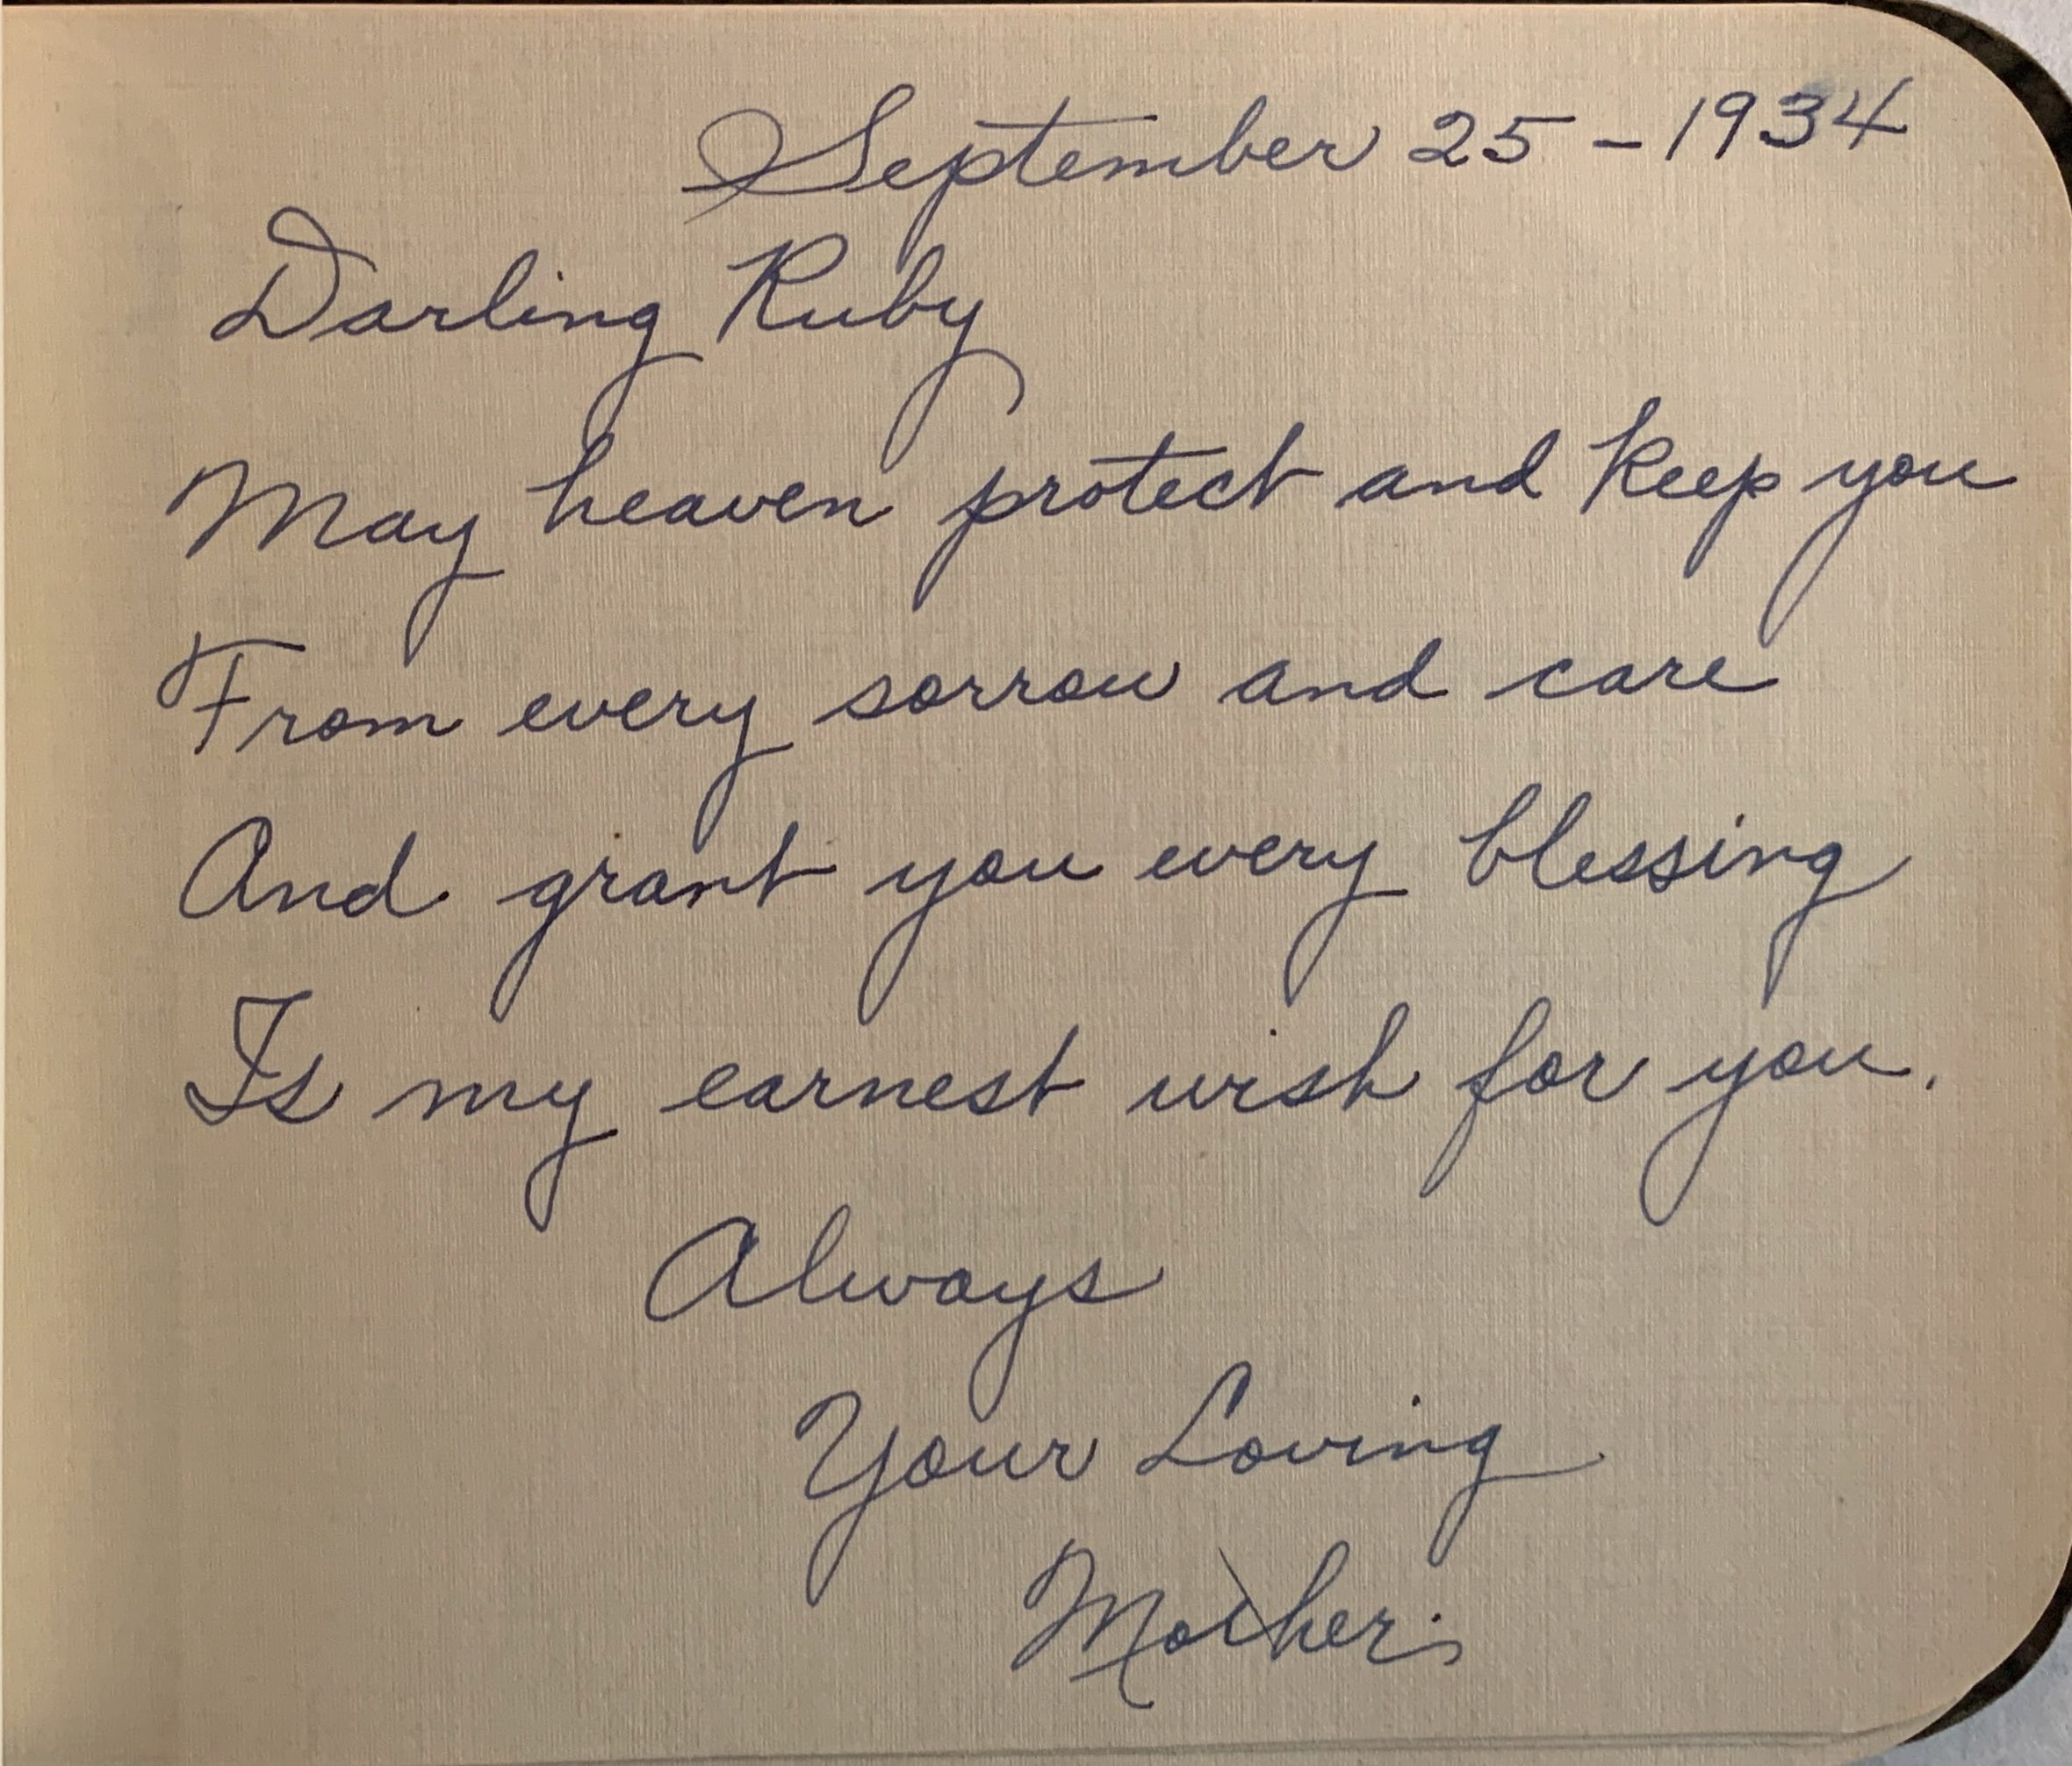 September 25 - 1934
Darling Ruby
May heaven protect and keep you
From every sorrow and care
And grant you every blessing
Is my earnest wish for you.
Always
Your Loving
Mother.